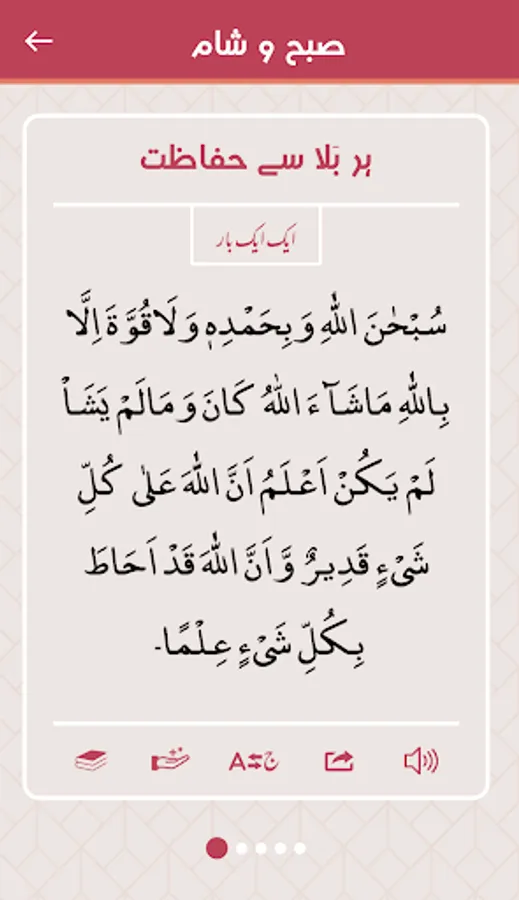 صبح و شام
ہر بَلا سے حفاظت
ایک ایک بار
سُبْحٰنَ اللّٰهِ وَبِحَمْدِهٖ وَلَا قُوَّةَ اِلَّا
بِاللّٰهِ مَاشَآءَ اللّٰهُ كَانَ وَمَالَمْ يَشَاْ
لَمْ يَكُنْ اَعْلَمُ اَنَّ اللّٰهَ عَلٰى كُلِّ
شَىْءٍ قَدِيرٌ وَّاَنَّ اللّٰهَ قَدْ اَحَاطَ
بِكُلِّ شَىْءٍ عِلْمًا۔
A ج